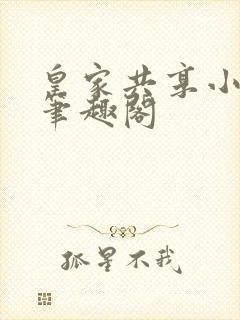 皇家共享小
笔趣阁
孤星不我